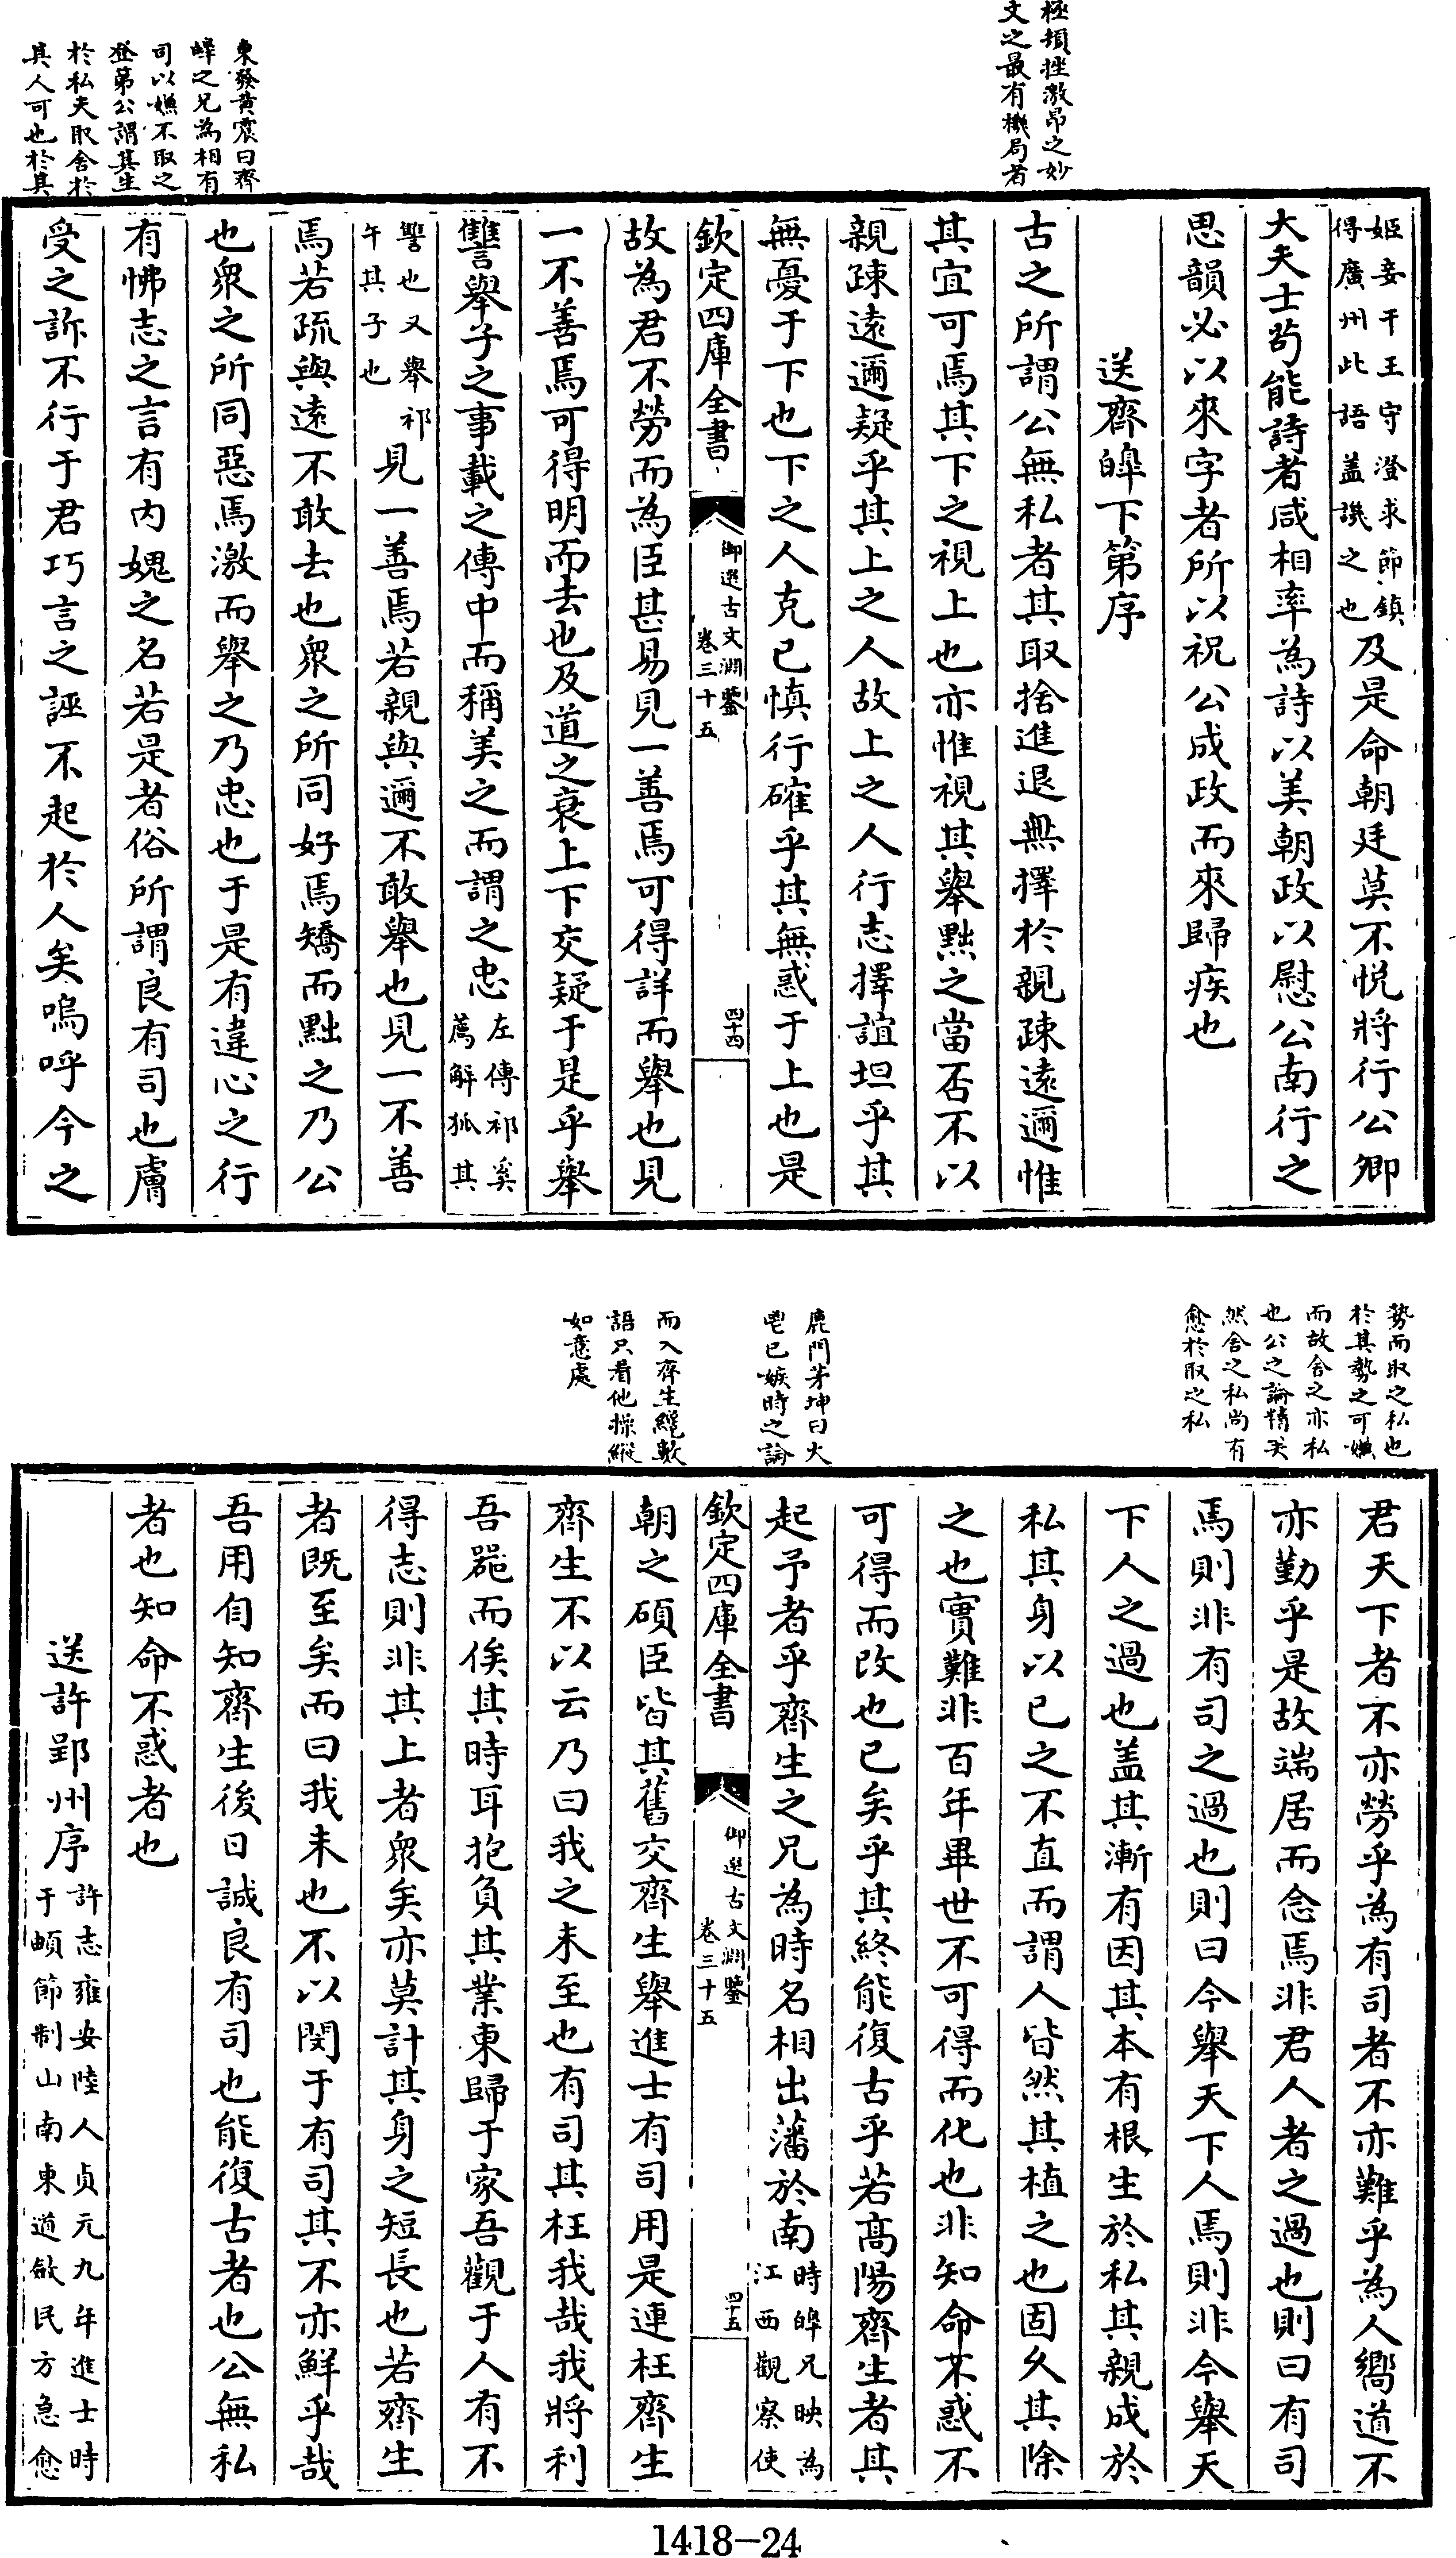 極頓挫激昂之妙
文之最有機局者
東發黃震曰齊
皥之兄為相有
司以嫌不取之
登第公謂其生
於私夫取舍於
其人可也於其
姬妾干王守澄求節鎮
得廣州此語盖譏之也及是命朝廷莫不悦將行公卿
大夫士茍能詩者咸相率為詩以美朝政以慰公南行之
思韻必以來字者所以祝公成政而來歸疾也
送齊皥下第序
古之所謂公無私者其取捨進退無擇於親疎逺邇惟
其宜可焉其下之視上也亦惟視其舉黜之當否不以
親疎逺邇疑乎其上之人故上之人行志擇誼坦乎其
無憂于下也下之人克已慎行確乎其無惑于上也是
欽定四庫全書
御選古文淵鑒
卷三十五
四十四
故為君不勞而為臣甚易見一善焉可得詳而舉也見
一不善焉可得明而去也及道之衰上下交疑于是乎舉
讐舉子之事載之傳中而稱美之而謂之忠左傳祁奚
薦解狐其
讐也又舉祁
午其子也見一善焉若親與邇不敢舉也見一不善
焉若疏與逺不敢去也衆之所同好焉矯而黜之乃公
也衆之所同惡焉激而舉之乃忠也于是有違心之行
有怫志之言有内媿之名若是者俗所謂良有司也膚
受之訴不行于君巧言之誣不起於人矣嗚呼今之
勢而取之私也
於其勢之可嫌
而故舍之亦私
也公之論精矣
然舍之私尚有
愈於取之私
鹿門茅坤曰大
㫖已嫉時之論
而入齊生纔數
語只看他操縱
如意處
君天下者不亦勞乎為有司者不亦難乎為人嚮道不
亦勤乎是故端居而念焉非君人者之過也則曰有司
焉則非有司之過也則曰今舉天下人焉則非今舉天
下人之過也盖其漸有因其本有根生於私其親成於
私其身以已之不直而謂人皆然其植之也固久其除
之也實難非百年畢世不可得而化也非知命不惑不
可得而改也已矣乎其終能復古乎若髙陽齊生者其
起予者乎齊生之兄為時名相出藩於南時皥兄映為
江西觀察使
欽定四庫全書
御選古文淵鑒
卷三十五
四十五
朝之碩臣皆其舊交齊生舉進士有司用是連枉齊生
齊生不以云乃曰我之未至也有司其枉我哉我將利
吾器而俟其時耳抱負其業東歸于家吾觀于人有不
得志則非其上者衆矣亦莫計其身之短長也若齊生
者既至矣而曰我未也不以閔于有司其不亦鮮乎哉
吾用自知齊生後日誠良有司也能復古者也公無私
者也知命不惑者也
送許郢州序許志雍安陸人貞元九年進士時
于頔節制山南東道斂民方急愈
1418-24